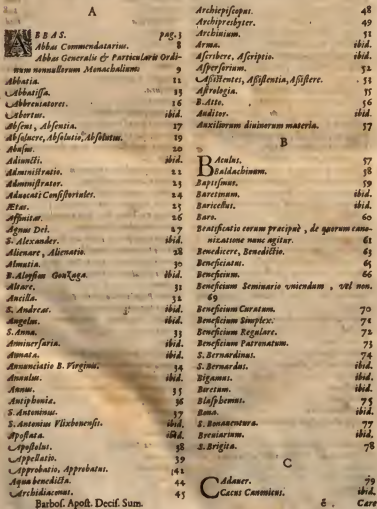 A
ABBAS. pag. 3
Abbas Commendatarius. 8
Abbas Generalis & Particularis Ordi-
num nonnullorum Monachalium. 9
Abbatia. 12
Abbatissa. 13
Abbreuiatores. 16
Abortus. ibid.
Absens, Absentia. 17
Absoluere, Absolutio, Absolutus. 19
Abusus. 20
Adiuncti. ibid.
Administratio. 22
Administrator. 23
Aduocati Consistoriales. 24
Ætas. 25
Affinitas. 26
Agnus Dei. 27
S. Alexander. ibid.
Alienare, Alienatio. 28
Almutia. 30
B. Aloysius Gonzaga. ibid.
Altare. 31
Ancilla. 32
S. Andreas. ibid.
Angelus. ibid.
S. Anna. 33
Anniuersaria. ibid.
Annata. ibid.
Annunciatio B. Virginis. 34
Annulus. ibid.
Annus. 35
Antiphonia. 36
S. Antoninus. 37
S. Antonius Vlixbonensis. ibid.
Apostata. ibid.
Apostolus. 38
Appellatio. 39
Approbatio, Approbatus. 142
Aqua benedicta. 44
Archidiaconus. 45
Barbos. Apost. Decis. Sum.
Archiepiscopus. 48
Archipresbyter. 49
Archiuium. 51
Arma. ibid.
Ascribere, Ascriptio. ibid.
Aspersorium. 52
Assistentes, Assistentia, Assistere. 53
Astrologia. 55
B. Atto. 56
Auditor. ibid.
Auxiliorum diuinorum materia. 57
B
BAculus. 57
Baldachinum. 58
Baptismus. 59
Baretinum. ibid.
Baricellus. ibid.
Baro. 60
Beatificatio eorum præcipuè, de quorum cano-
nizatione nunc agitur. 61
Benedicere, Benedictio. 63
Beneficiatus. 65
Beneficium. 66
Beneficium Seminario vniendum, vel non.
69
Beneficium Curatum. 70
Beneficium Simplex. 71
Beneficium Regulare. 72
Beneficium Patronatum. 73
S. Bernardinus. 74
S. Bernardus. ibid.
Bigamus. ibid.
Biretum. ibid.
Blasphemus. 75
Bona. ibid.
S. Bonauentura. 77
Breuiarium. ibid.
S. Brigita. 78
C
CAdauer. 79
Cæcus Canonicus. ibid.
ê. Care